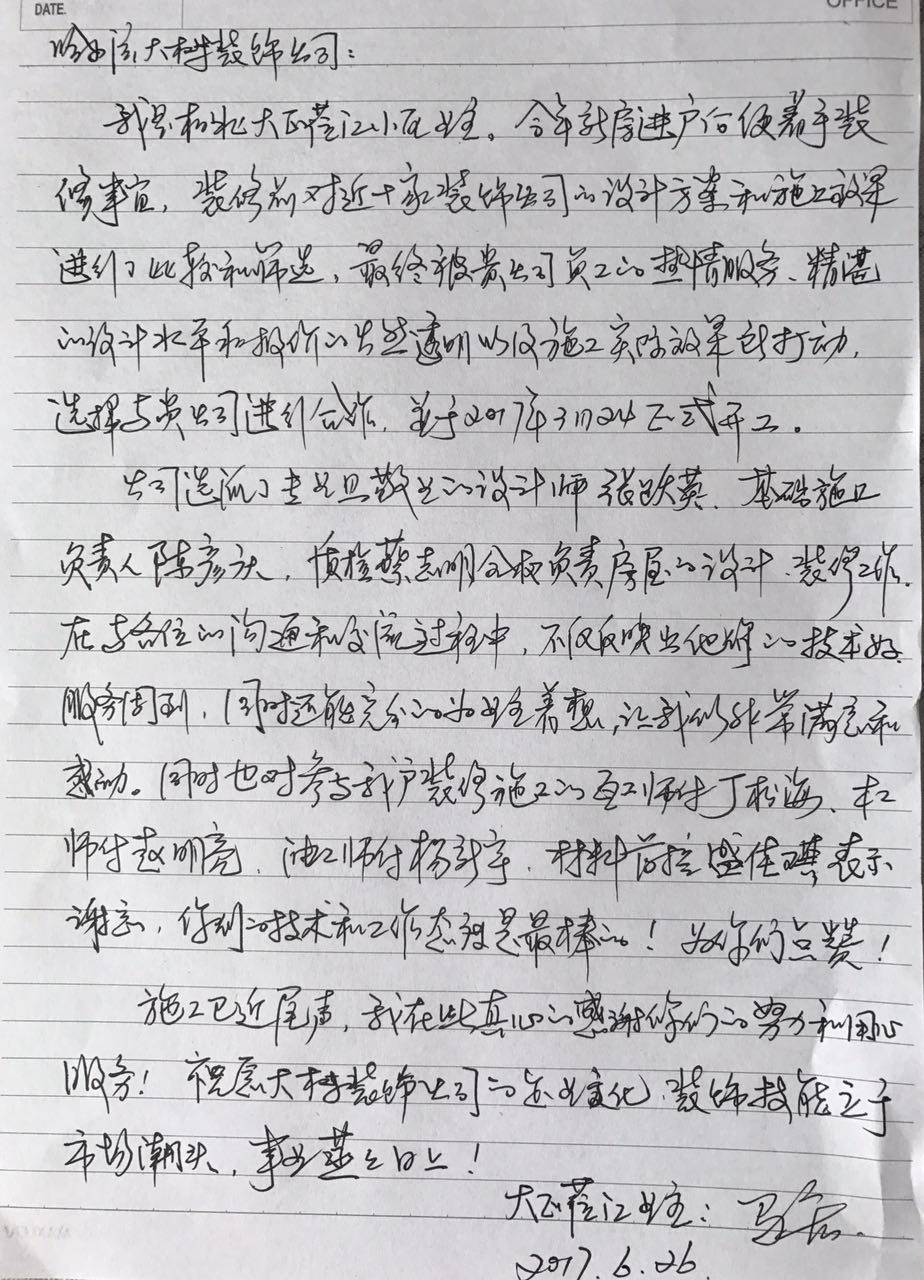 DATE. OFFICE
哈尔滨大树装饰公司：
我是松北大正莅江小区业主。今年新房进户后便着手装
修事宜，装修前对近十家装饰公司的设计方案和施工效果
进行了比较和筛选，最终被贵公司员工的热情服务、精湛
的设计水平和报价的公然透明以及施工实际效果所打动，
选择与贵公司进行合作，并于2017年3月24正式开工。
公司选派了专业且敬业的设计师张跃英、基础施工
负责人陈彦庆，质检蔡志明全权负责房屋的设计、装修工作。
在与各位的沟通和交流过程中，不仅反映出他们的技术好
服务周到，同时还能完全的为业主着想，让我们非常满意和
感动。同时也对参与我户装修施工的瓦工师付丁松海、木工
师付赵明亮、油工师付杨新宇、材料前控盛佳琪表示
谢意，你们的技术和工作态度是最棒的！为你们点赞！
施工已近尾声，我在此真心的感谢你们的努力和用心
服务！祝愿大树装饰公司的企业文化、装饰技能立于
市场潮头，事业蒸蒸日上！
大正莅江业主：
2017.6.26